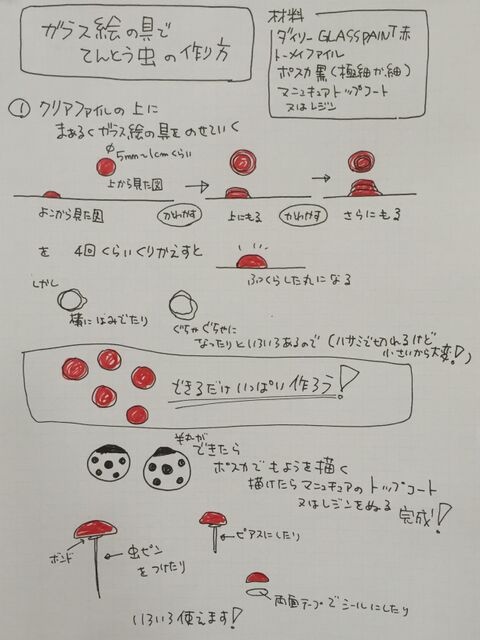 ガラス絵の具で
てんとう虫の作り方
材料
ダイソー GLASS PAINT 赤
トーメイファイル
ポスカ 黒(極細か細)
マニキュアトップコート
又はレジン
① クリアファイルの上に
まあるくガラス絵の具をのせていく
φ5mm〜1cmくらい
上から見た図
よこから見た図
かわかす
上にもる
かわかす
さらにもる
を 4回くらいくりかえすと
ぷっくらした丸になる
しかし
横にはみでたり
ぐちゃぐちゃに
なったりといろいろあるので (ハサミで切れるけど
小さいから大変!)
できるだけいっぱい作ろう!
半丸が
できたら
ポスカでもようを描く
描けたらマニキュアのトップコート
又はレジンをぬる
完成!
ボンド
虫ピン
をつけたり
ピアスにしたり
両面テープでシールにしたり
いろいろ使えます!